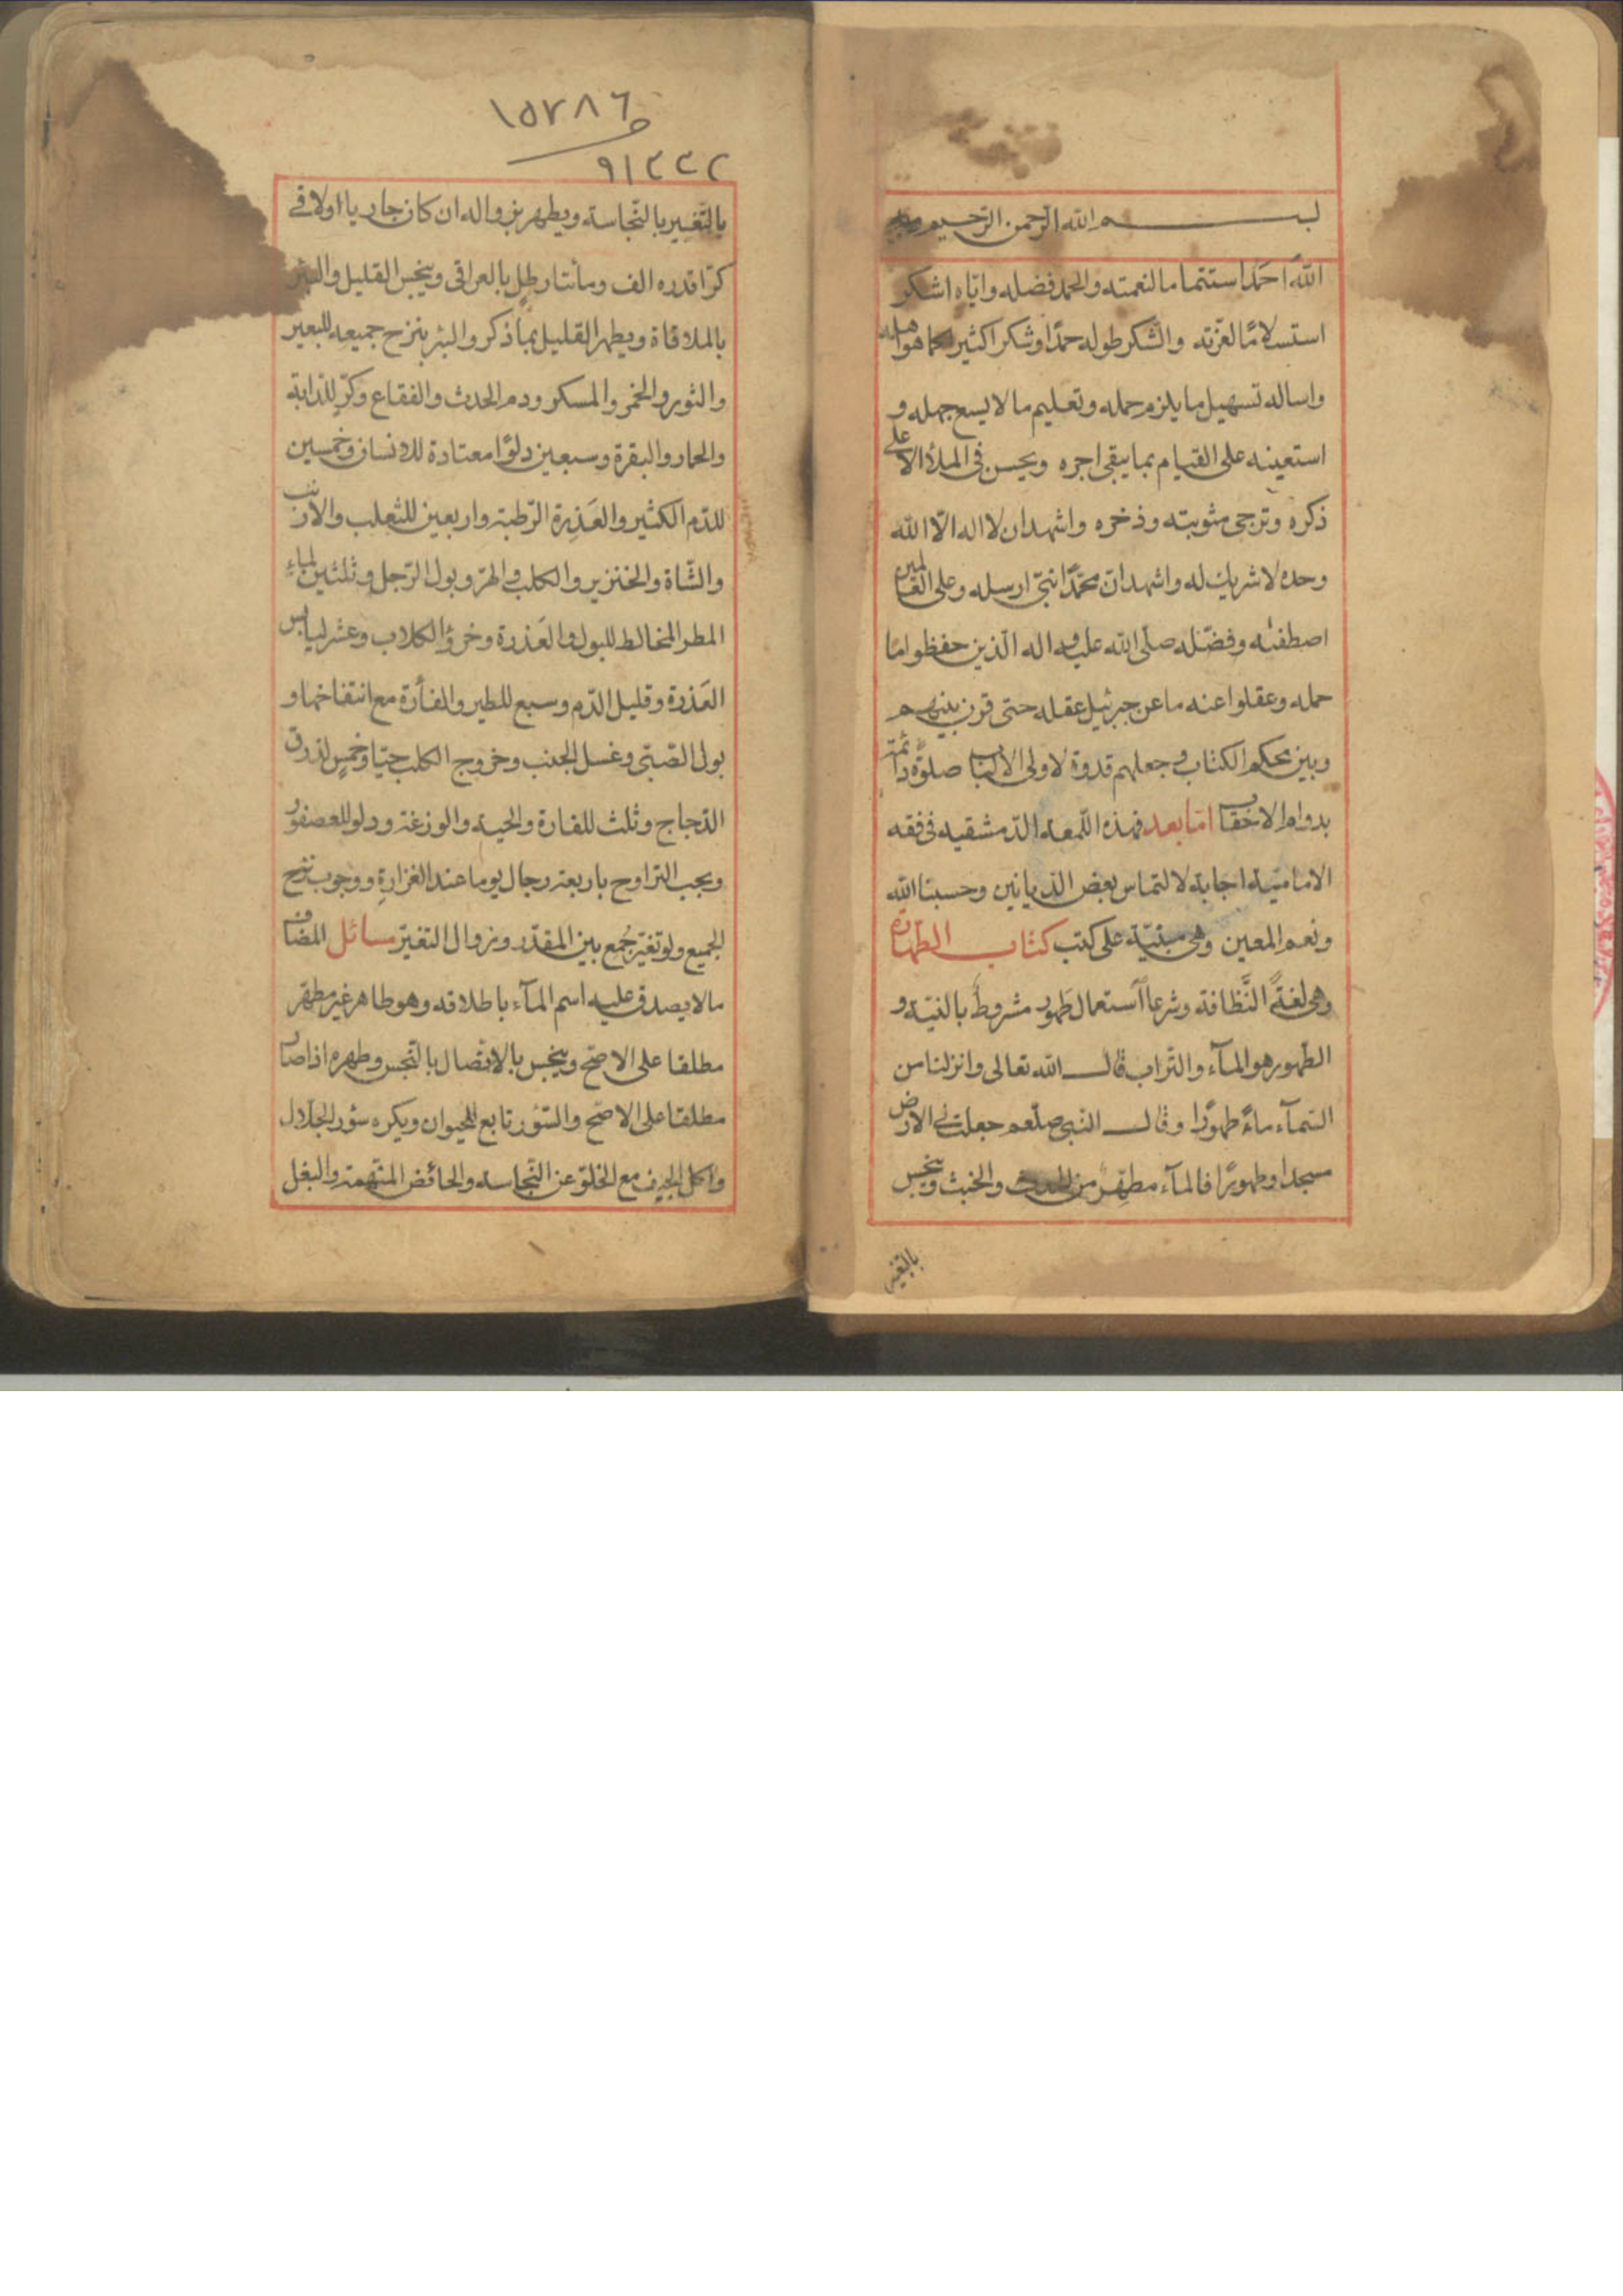 بسم الله الرحمن الرحيم
الله احمد استتماما لنعمته والحمد فضله واياه اشكر
استسلامًا لعزته والشكر طوله حمدًا وشكرا كثيرا كما هو اهله
واساله تسهيل ما يلزم حمله وتعليم ما لا يسع جهله و
استعينه على القيام بما يبقى اجره ويحسن فى الملأ الاعلى
ذكره وترجى مثوبته وذخره واشهد ان لا اله الا الله
وحده لا شريك له واشهد ان محمدًا نبى ارسله وعلى العالمين
اصطفئه وفضله صلى الله عليه واله الذين حفظوا ما
حمله وعقلوا عنه ما عن جبرئيل عقله حتى قرن بينهم
وبين محكم الكتاب وجعلهم قدوة لاولى الالباب صلوة دائمة
بدوام الاحقاب اما بعد فهذه اللمعه الدمشقيه فى فقه
الاماميه اجابة لالتماس بعض الديانين وحسبنا الله
ونعم المعين وهى مبنية على كتب كتاب الطهارة
وهى لغةً النَّظافة وشرعا استعمال طَهور مشروطٌ بالنية و
الطهور هو المآء والتراب قال الله تعالى وانزلنا من
السمآء ماءً طهورًا وقال النبى صلعم جعلت لى الارض
مسجدا وطهورًا فالمآء مطهّر من الحدث والخبث وينجس
بالتغير
١٥٢٨٦
٩١٣٣٢
بالتغيير بالنجاسة ويطهر بزواله ان كان جاريا او لاقى
كرّا قدره الف ومأتا رطل بالعراقى وينجس القليل والبئر
بالملاقاة ويطهر القليل بما ذكر والبئر بنزح جميعه للبعير
والثور والخمر والمسكر ودم الحدث والفقاع وكر للدابة
والحمار والبقرة وسبعين دلوًا معتادة للانسان وخمسين
للدم الكثير والعَذِرة الرطبة واربعين للثعلب والارنب
والشاة والخنزير والكلب والهر وبول الرجل وثلثين لماء
المطر المخالط للبول والعَذرة وخرؤ الكلاب وعشر ليابس
العَذرة وقليل الدم وسبع للطير والفأرة مع انتفاخها و
بول الصبى وغسل الجنب وخروج الكلب حيّا وخمسٍ لذرق
الدجاج وثلث للفارة والحية والوزغة ودلو للعصفور
ويجب التراوح باربعة رجال يوما عند الغزارة ووجوب نزح
الجميع ولو تغير جُمع بين المقدر وزوال التغير مسائل المضاف
ما لا يصدق عليه اسم المآء باطلاقه وهو طاهر غير مطهر
مطلقا على الاصح وينجس بالاتصال بالنجس وطهره اذا صار
مطلقا على الاصح والسؤر تابع للحيوان ويكره سؤر الجلال
واكل الجيف مع الخلو عن النجاسة والحائض المتهمة والبغل